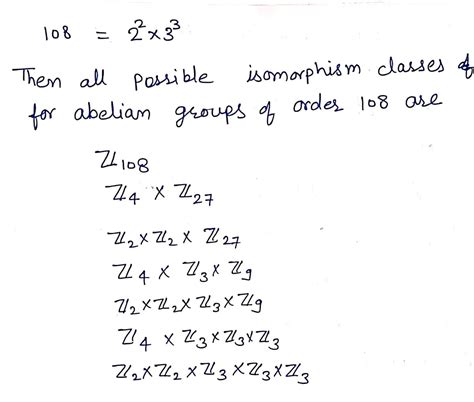 108 = 2² × 3³
Then all possible isomorphism classes of
for abelian groups of order 108 are
ℤ₁₀₈
ℤ₄ × ℤ₂₇
ℤ₂ × ℤ₂ × ℤ₂₇
ℤ₄ × ℤ₃ × ℤ₉
ℤ₂ × ℤ₂ × ℤ₃ × ℤ₉
ℤ₄ × ℤ₃ × ℤ₃ × ℤ₃
ℤ₂ × ℤ₂ × ℤ₃ × ℤ₃ × ℤ₃